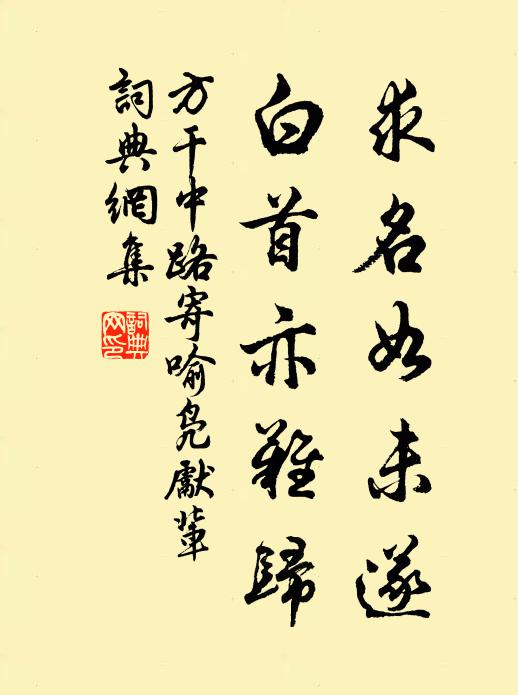 求名如未遂
白首亦難歸
方干中路寄喻鳧獻輩
詞典網集
詞典
网印